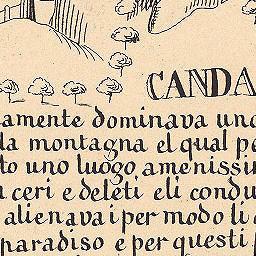 CANDA
amente dominava uno
la montagna el qual pe
to uno luogo amenissi
ceri e deleti e li condu
alienava i per modo li
paradiso e per questi